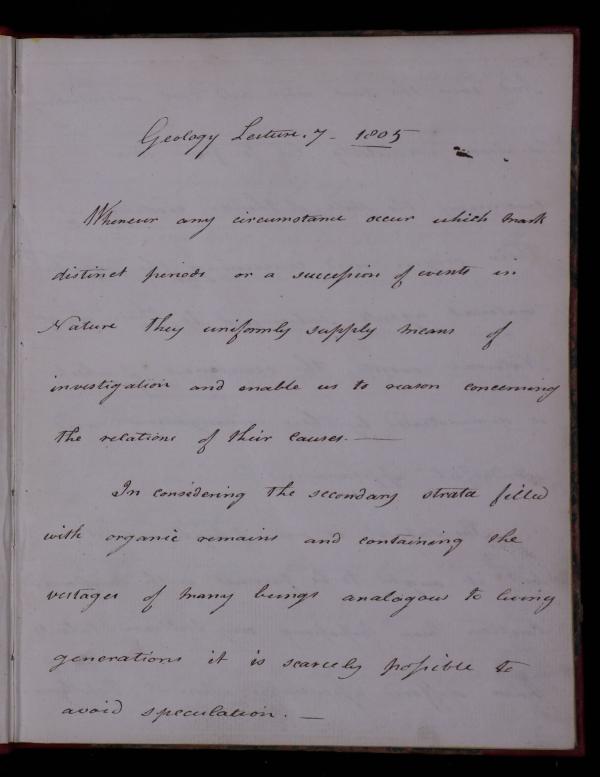 Geology Lecture. 7 - 1805
Whenever any circumstance occur which mark
distinct periods or a succession of events in
Nature they uniformly supply means of
investigation and enable us to reason concerning
the relations of their causes. —
In considering the secondary strata filled
with organic remains and containing the
vestages of many beings analogous to living
generations it is scarcely possible to
avoid speculation. —